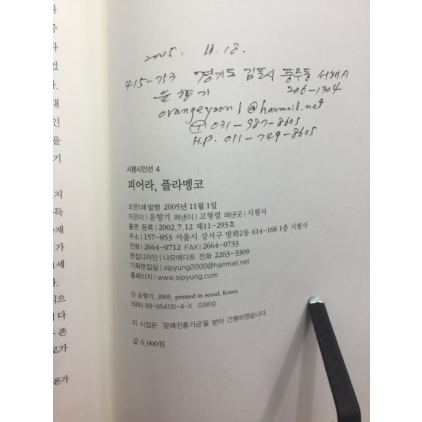 2005. 11. 18.
415-753 경기도 김포시 풍무동 서해A
윤향기 206-1304
orangeyoon1@hanmail.net
T 031-987-8605
H.P. 011-749-8605
시평시인선 4
피어라, 플라멩코
초판1쇄 발행 2005년 11월 1일
지은이 | 윤향기 펴낸이 | 고형렬 펴낸곳 | 시평사
출판 등록 | 2002.7.12 제11-293호
주소 | 157-853 서울시 강서구 방화2동 614-168 1층 시평사
전화 | 2664-0712 FAX | 2664-0733
편집디자인 | 나모에디트 전화 2263-3309
기획편집실 | sipyung2000@hanmail.net
홈페이지 | www.sipyung.com
ⓒ 윤향기, 2005, printed in seoul, Korea
ISBN 89-954131-4-X 03810
이 시집은 '문예진흥기금'을 받아 간행하였습니다.
값 6,000원